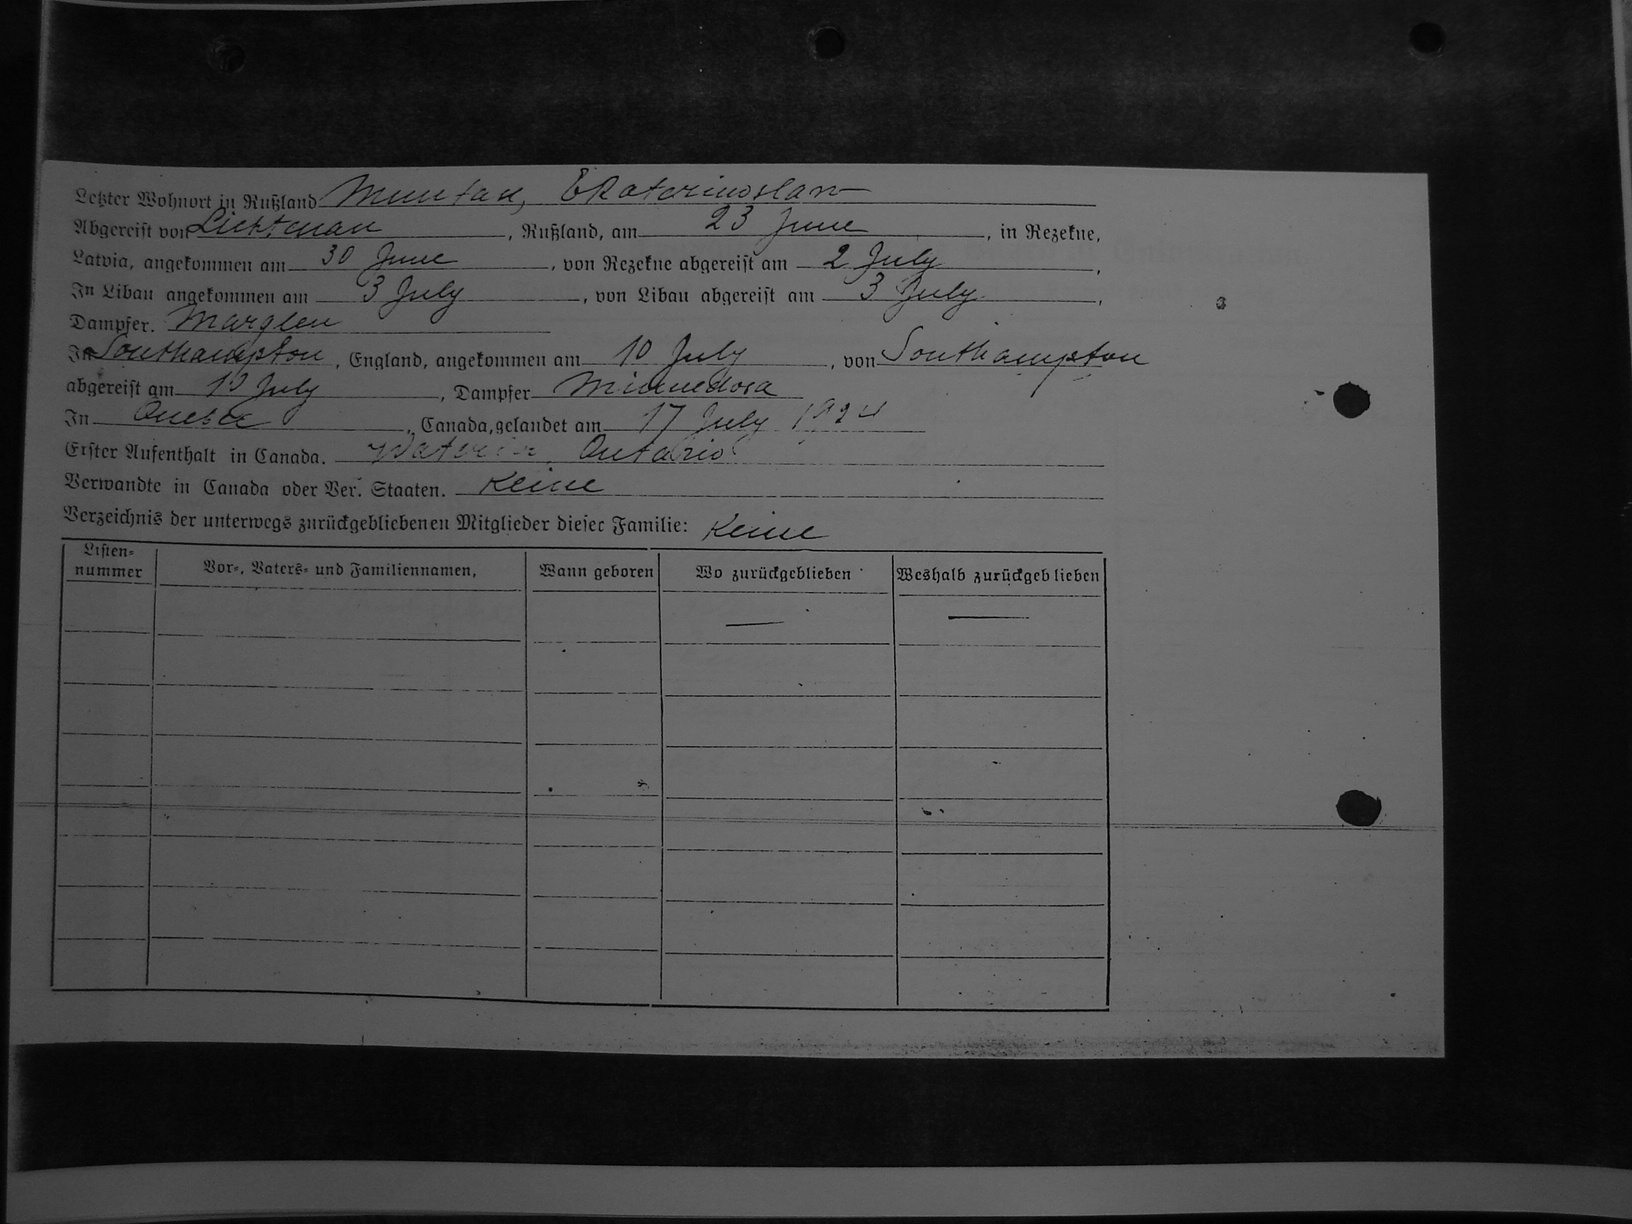 Letzter Wohnort in Rußland Muntau, Ekaterinoslaw
Abgereist von Lichtenau, Rußland, am 23 June, in Rezekne,
Latvia, angekommen am 30 June, von Rezekne abgereist am 2 July,
In Libau angekommen am 3 July, von Libau abgereist am 3 July,
Dampfer. Marglen
In Southampton, England, angekommen am 10 July, von Southampton
abgereist am 10 July, Dampfer Minnedosa
In Quebec, Canada, gelandet am 17 July 1924
Erster Aufenthalt in Canada. Ontario
Verwandte in Canada oder Ver. Staaten. Keine
Verzeichnis der unterwegs zurückgebliebenen Mitglieder dieser Familie: Keine
Listen-
nummer Vor-, Vaters- und Familiennamen, Wann geboren Wo zurückgeblieben Weshalb zurückgeblieben
— —